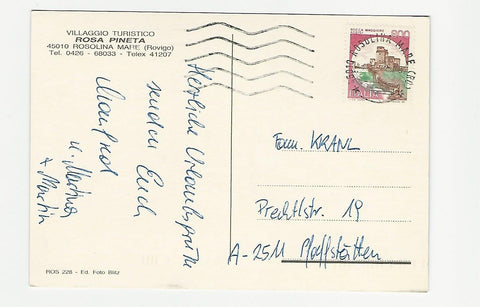 VILLAGGIO TURISTICO
ROSA PINETA
45010 ROSOLINA MARE (Rovigo)
Tel. 0426 - 68033 - Telex 41207
Herzliche Urlaubsgrüße
senden Euch
Manfred
u. Martina
+ Martin
ROS 228 - Ed. Foto Blitz
800
ROSOLINA MARE (RO)
Fam. KRANL
Prechtlstr. 19
A-2511 Pfaffstätten